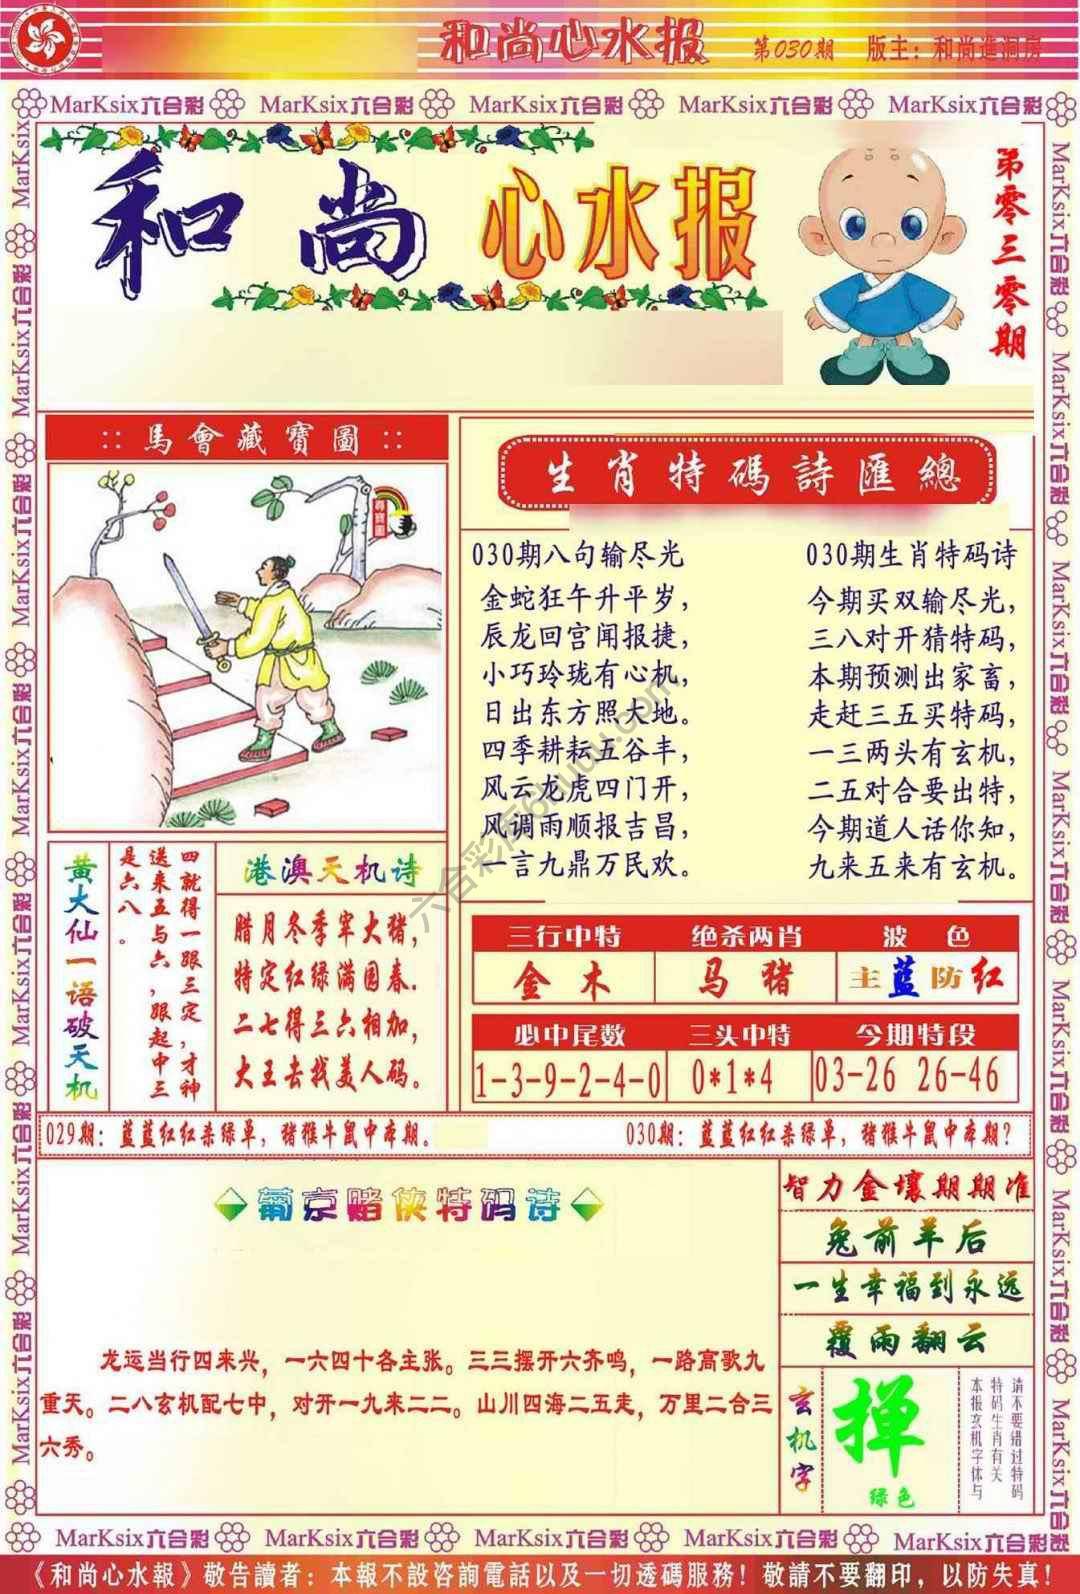 和尚心水报 第030期 版主：和尚進洞房
MarKsix六合彩 MarKsix六合彩 MarKsix六合彩 MarKsix六合彩 MarKsix六合彩
和尚心水报
第零三零期
::馬會藏寶圖::
生肖特碼詩匯總
030期八句输尽光
金蛇狂午升平岁，
辰龙回宫闻报捷，
小巧玲珑有心机，
日出东方照大地。
四季耕耘五谷丰，
风云龙虎四门开，
风调雨顺报吉昌，
一言九鼎万民欢。
030期生肖特码诗
今期买双输尽光，
三八对开猜特码，
本期预测出家畜，
走赶三五买特码，
一三两头有玄机，
二五对合要出特，
今期道人话你知，
九来五来有玄机。
六合彩库6tuuu.com
黄大仙一语破天机
四就得一跟三定，才神
送来五与六，跟起中三
是六八。
港澳天机诗
腊月冬季宰大猪，
特定红绿满园春.
二七得三六相加，
大王去找美人码。
三行中特 绝杀两肖 波色
金木 马猪 主蓝防红
必中尾数 三头中特 今期特段
1-3-9-2-4-0 0*1*4 03-26 26-46
029期：蓝蓝红红杀绿单，猪猴牛鼠中本期。
030期：蓝蓝红红杀绿单，猪猴牛鼠中本期？
葡京赌侠特码诗
龙运当行四来兴，一六四十各主张。三三摆开六齐鸣，一路高歌九
重天。二八玄机配七中，对开一九来二二。山川四海二五走，万里二合三
六秀。
智力金壤期期准
兔前羊后
一生幸福到永远
覆雨翻云
玄机字
掸
绿色
请不要错过特码
特码生肖有关
本报玄机字体与
MarKsix六合彩 MarKsix六合彩 MarKsix六合彩 MarKsix六合彩 MarKsix六合彩
《和尚心水報》敬告讀者：本報不設咨詢電話以及一切透碼服務！敬請不要翻印，以防失真！